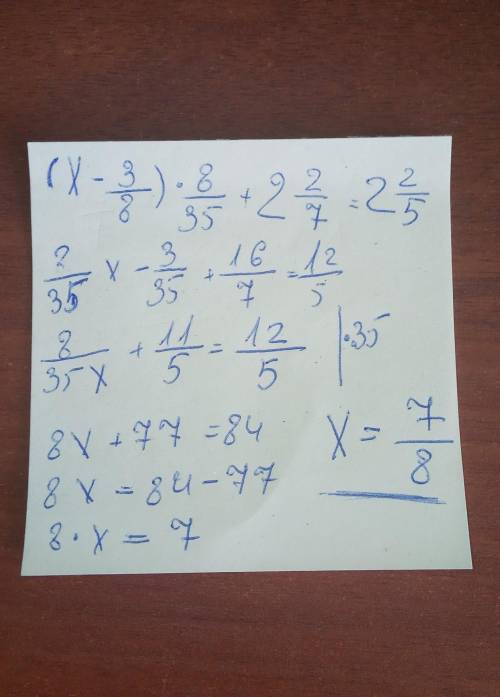 (x - 3/8) · 8/35 + 2 2/7 = 2 2/5
8/35 x - 3/35 + 16/7 = 12/5
8/35x + 11/5 = 12/5 | ·35
8x + 77 = 84
8x = 84 - 77
8 · x = 7
x = 7/8